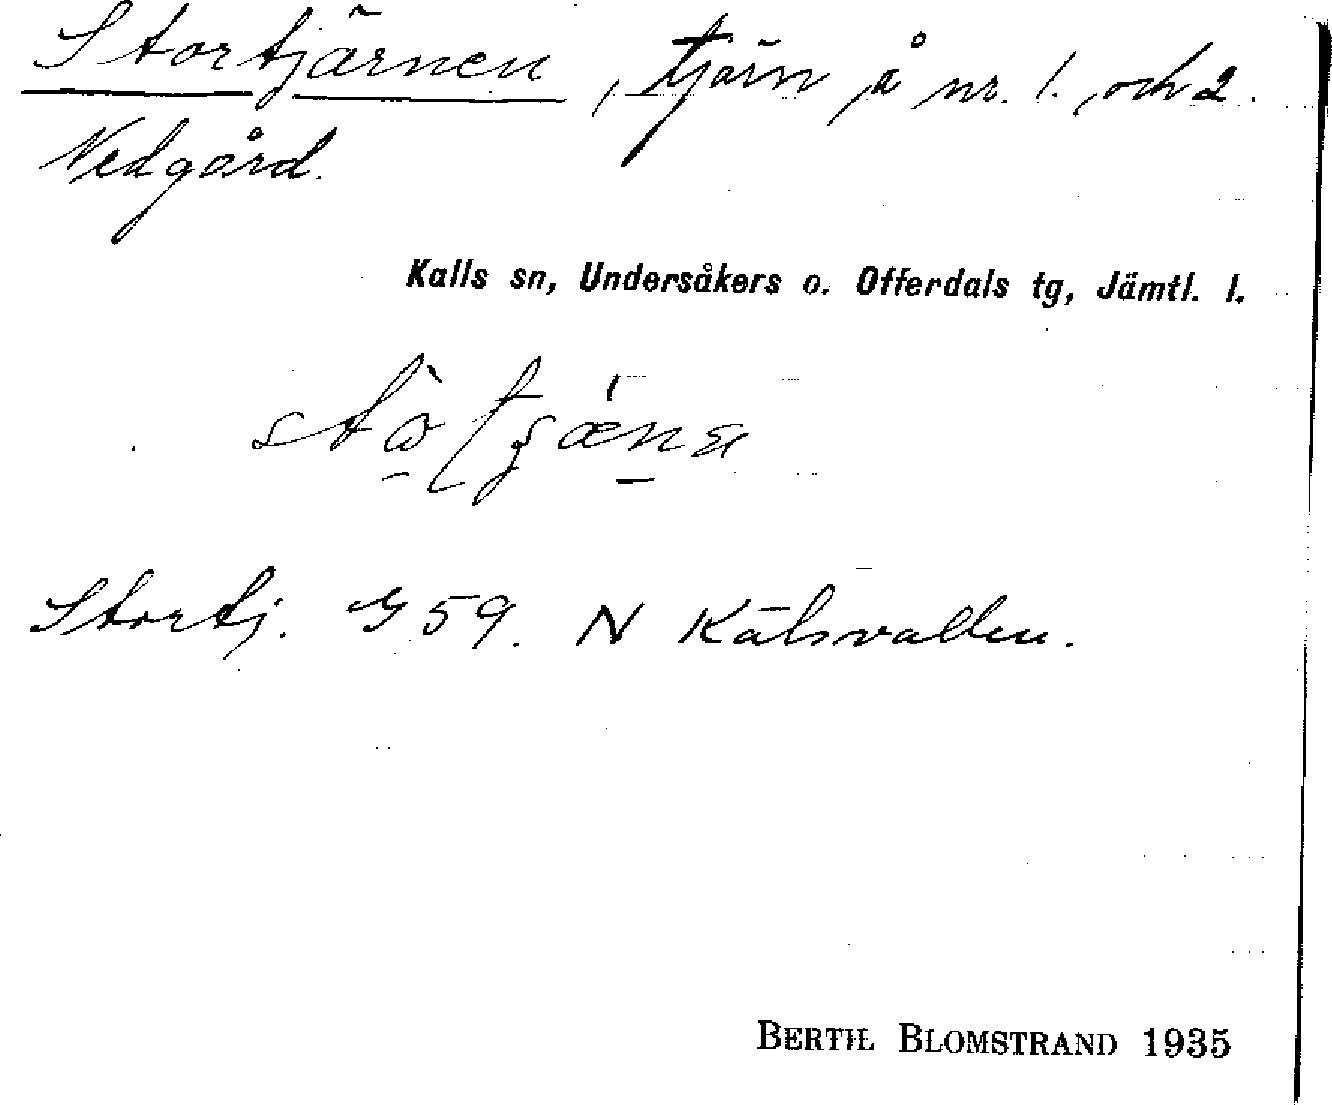 Stortjärnen, tjärn å nr. 1. och 2.
Nedgård.
Kalls sn, Undersåkers o. Offerdals tg, Jämtl. l.
Stortj. G 59. N Kälsvallen.
BERTIL BLOMSTRAND 1935